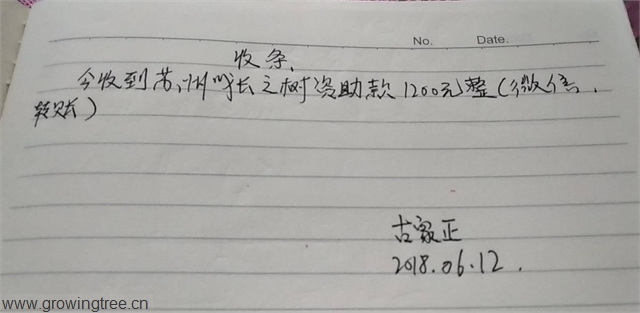 No. Date.
收条.
今收到苏州成长之树资助款1200元整(微信.
转账)
古家正
2018.06.12.
www.growingtree.cn